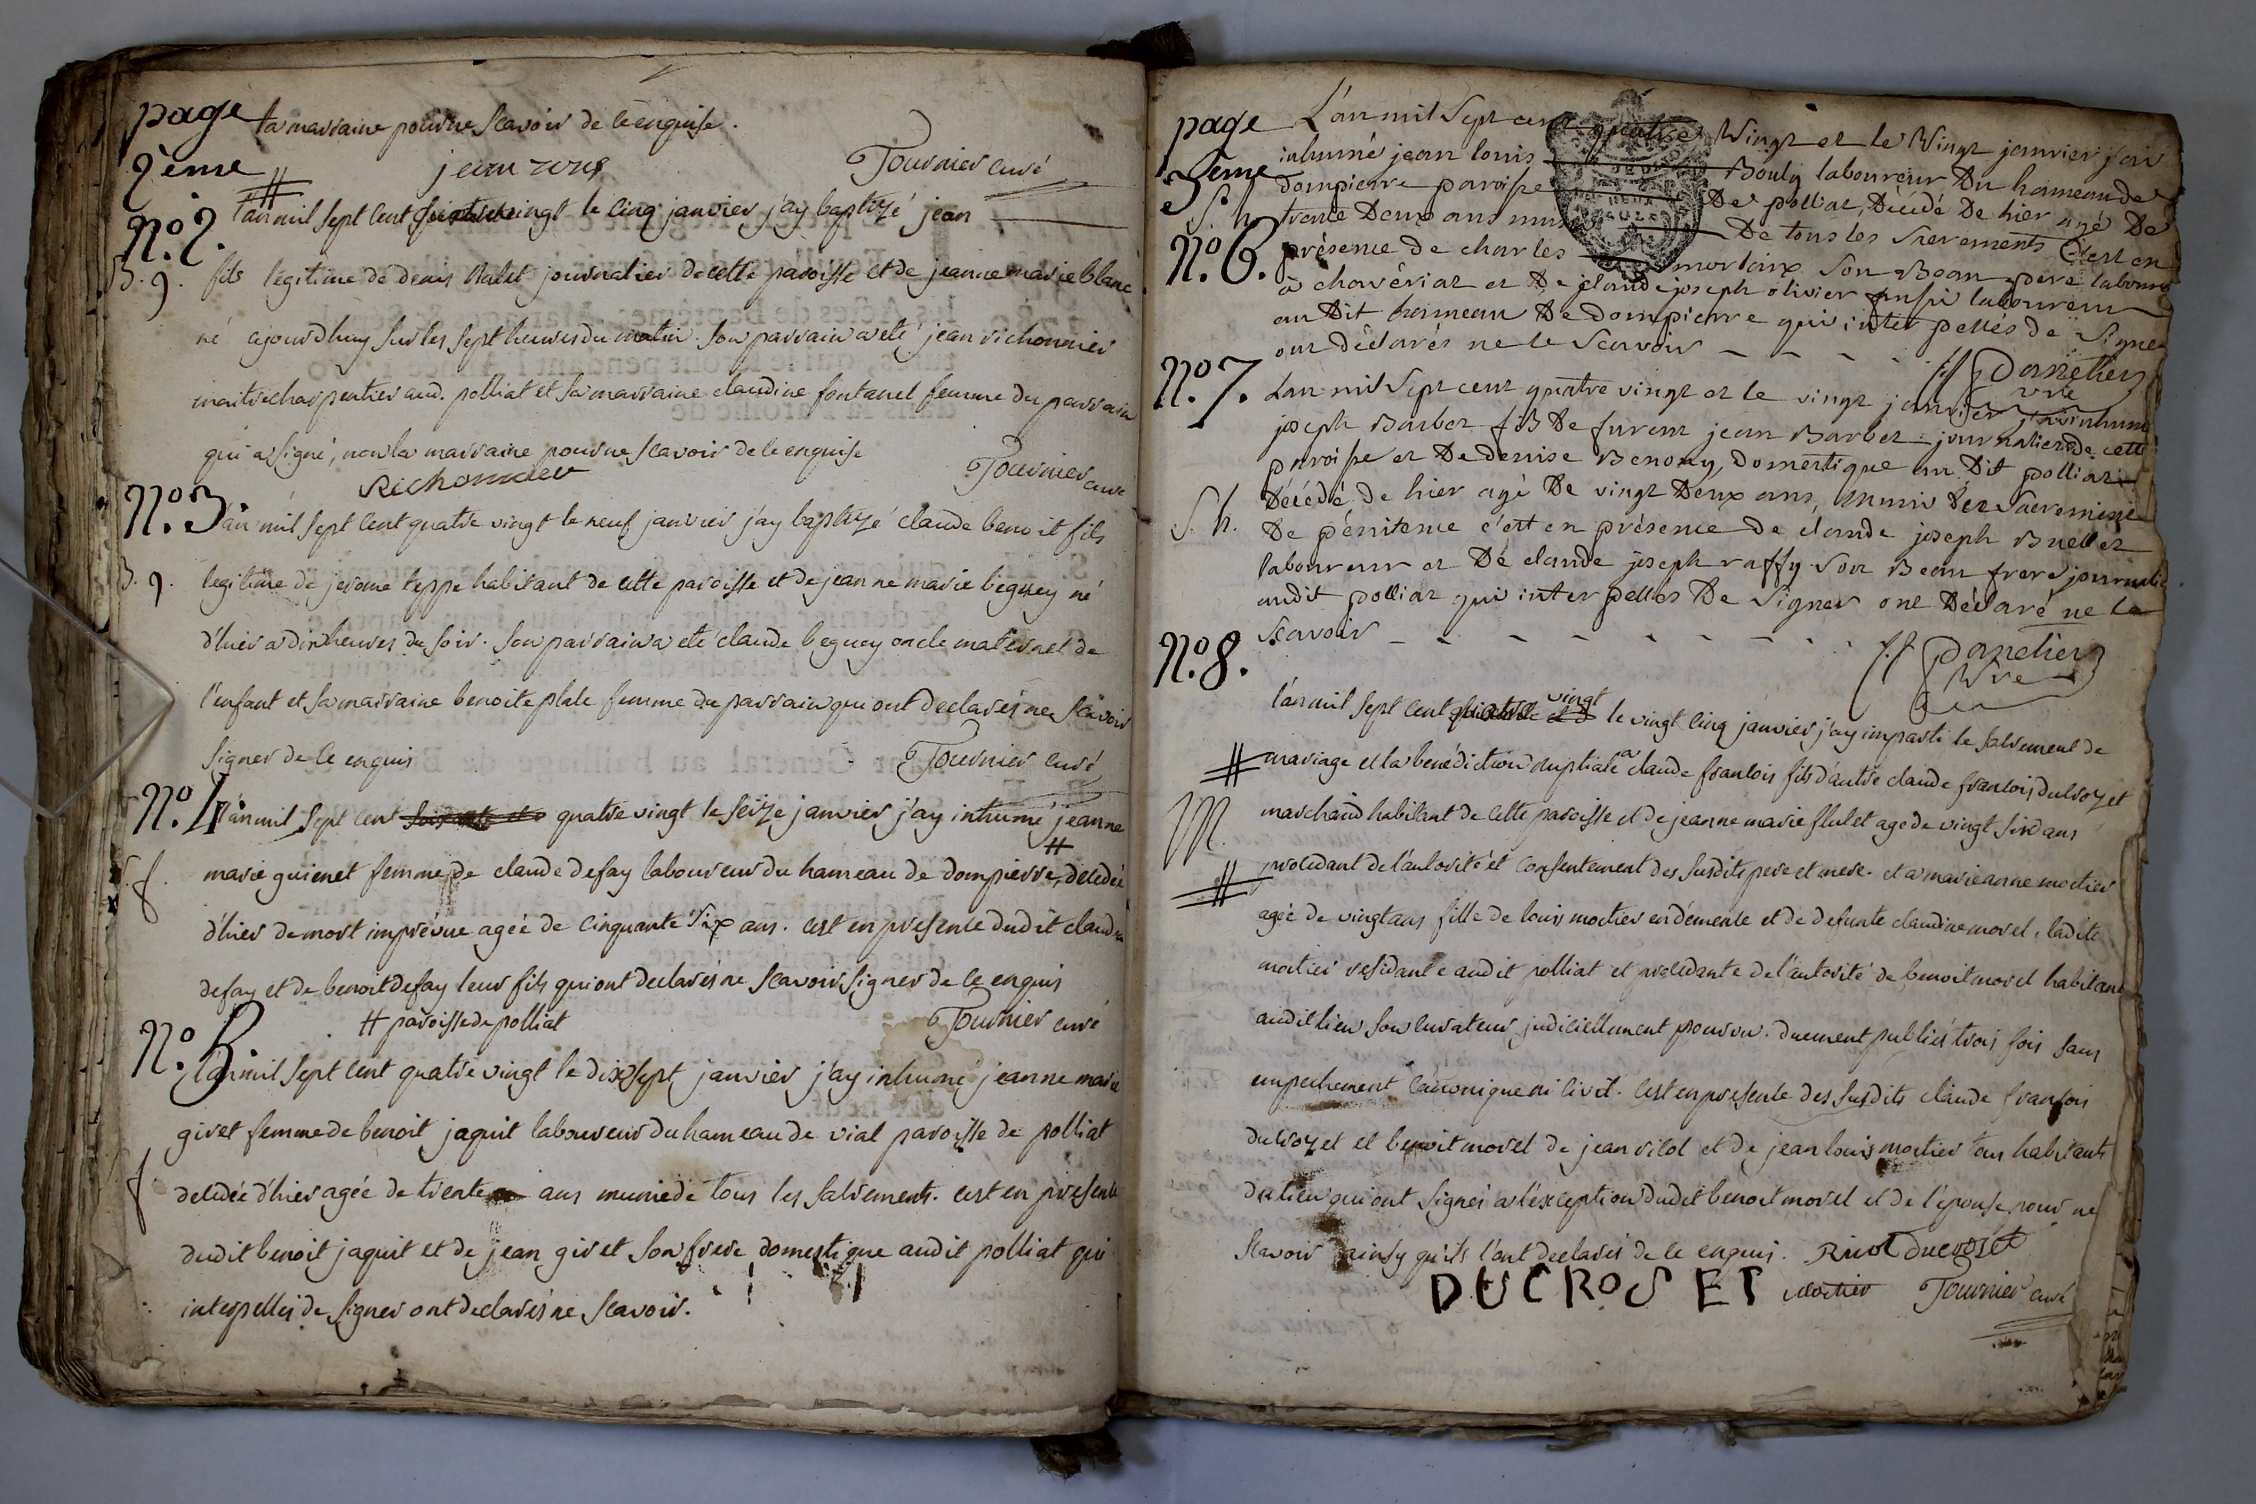 page
2ème
la marraine pour ne scavoir de ce enquise.
Tournier curé
No. 2.
B. g.
l'an mil sept cent quatre vingt le cinq janvier j'ay baptizé jean
fils legitime de denis Valet journalier de cette paroisse et de jeanne marie blanc
né ajourdhuy sur les sept heures du matin. son parrain a eté jean richonnier
maitre charpentier aud. polliat et sa marraine claudine fontanel femme du parrain
qui a signé, non la marraine pour ne scavoir de ce enquise
Richonnier
Tournier curé
No. 3.
B. g.
l'an mil sept cent quatre vingt le neuf janvier j'ay baptizé claude benoit fils
legitime de jerome teppe habitant de cette paroisse et de jeanne marie beguey né
d'hier a dix heures du soir. son parrain a eté claude beguey oncle maternel de
l'enfant et sa marraine benoite plate femme du parrain qui ont declarés ne scavoir
signer de ce enquis
Tournier curé
No. 4
S. f.
l'an mil sept cent quatre vingt le seize janvier j'ay inhumé jeanne
marie guienet femme de claude defay laboureur du hameau de dompierre, # decedée
d'hier de mort imprévue agée de cinquante six ans. c'est en presence dudit claude
defay et de benoit defay leur fils qui ont declarés ne scavoir signer de ce enquis
# paroisse de polliat
Tournier curé
No. 5.
f.
l'an mil sept cent quatre vingt le dix sept janvier j'ay inhumé jeanne marie
giret femme de benoit jaquit laboureur du hameau de vial paroisse de polliat
decedée d'hier agée de trente ans munie de tous les sacrements. c'est en presence
dudit benoit jaquit et de jean giret son frere domestique audit polliat qui
interpellés de signer ont declarés ne scavoir.
page
3eme
S. h.
No. 6.
L'an mil sept cent quatre Vingt et le Vingt janvier j'ai
inhumé jean louis Bouly laboureur Du hameau de
dompierre paroisse De polliat, Décédé De hier agé De
trente Deux ans muni De tous les sacrements C'est en
présence de charles mortaix son Beau pere laboureur
à chavériat et De claude joseph olivier aussi laboureur
au Dit hameau De Dompierre qui interpellés de signer
ont déclarés ne le scavoir - - - -
panetier
vre
No. 7.
S. h.
L'an mil sept cent quatre vingt et le vingt janvier j'ai inhumé
joseph Barbet fils De furent jean Barbet journalier de cette
paroisse et De denise Benony, Domestique au Dit polliat
Décédé de hier agé De vingt Deux ans, muni Des Sacrements
De pénitence c'est en présence De claude joseph Buellet
laboureur et De claude joseph raffy son Beau frere journalier
audit polliat qui interpellés De signer ont Déclaré ne le
scavoir - - - - - -
panetier
vre
No. 8.
M.
l'an mil sept cent quatre vingt le vingt cinq janvier j'ay imparti le sacrement de
mariage et la benédiction nuptiale a claude francois fils d'autre claude francois ducrozet
marchand habitant de cette paroisse et de jeanne marie flulet agé de vingt six ans
procedant de l'autorité et consentement des susdits pere et mere. et a marie anne moitier
agée de vingt ans fille de louis moitier en démence et de defunte claudine morel, ladite
moitier residante audit polliat et procedante de l'autorité de benoit morel habitant
audit lieu son curateur judiciellement pourvu. duement publiés trois fois sans
empechement canonique ni civil. c'est en presence des susdits claude francois
ducrozet et benoit morel de jean vilot et de jean louis moitier tous habitants
du lieu qui ont signés a l'exception dudit benoit morel et de l'épouse pour ne
scavoir ainsy qu'ils l'ont declarés de ce enquis. Ducroset
DUCROSET moitier Tournier curé